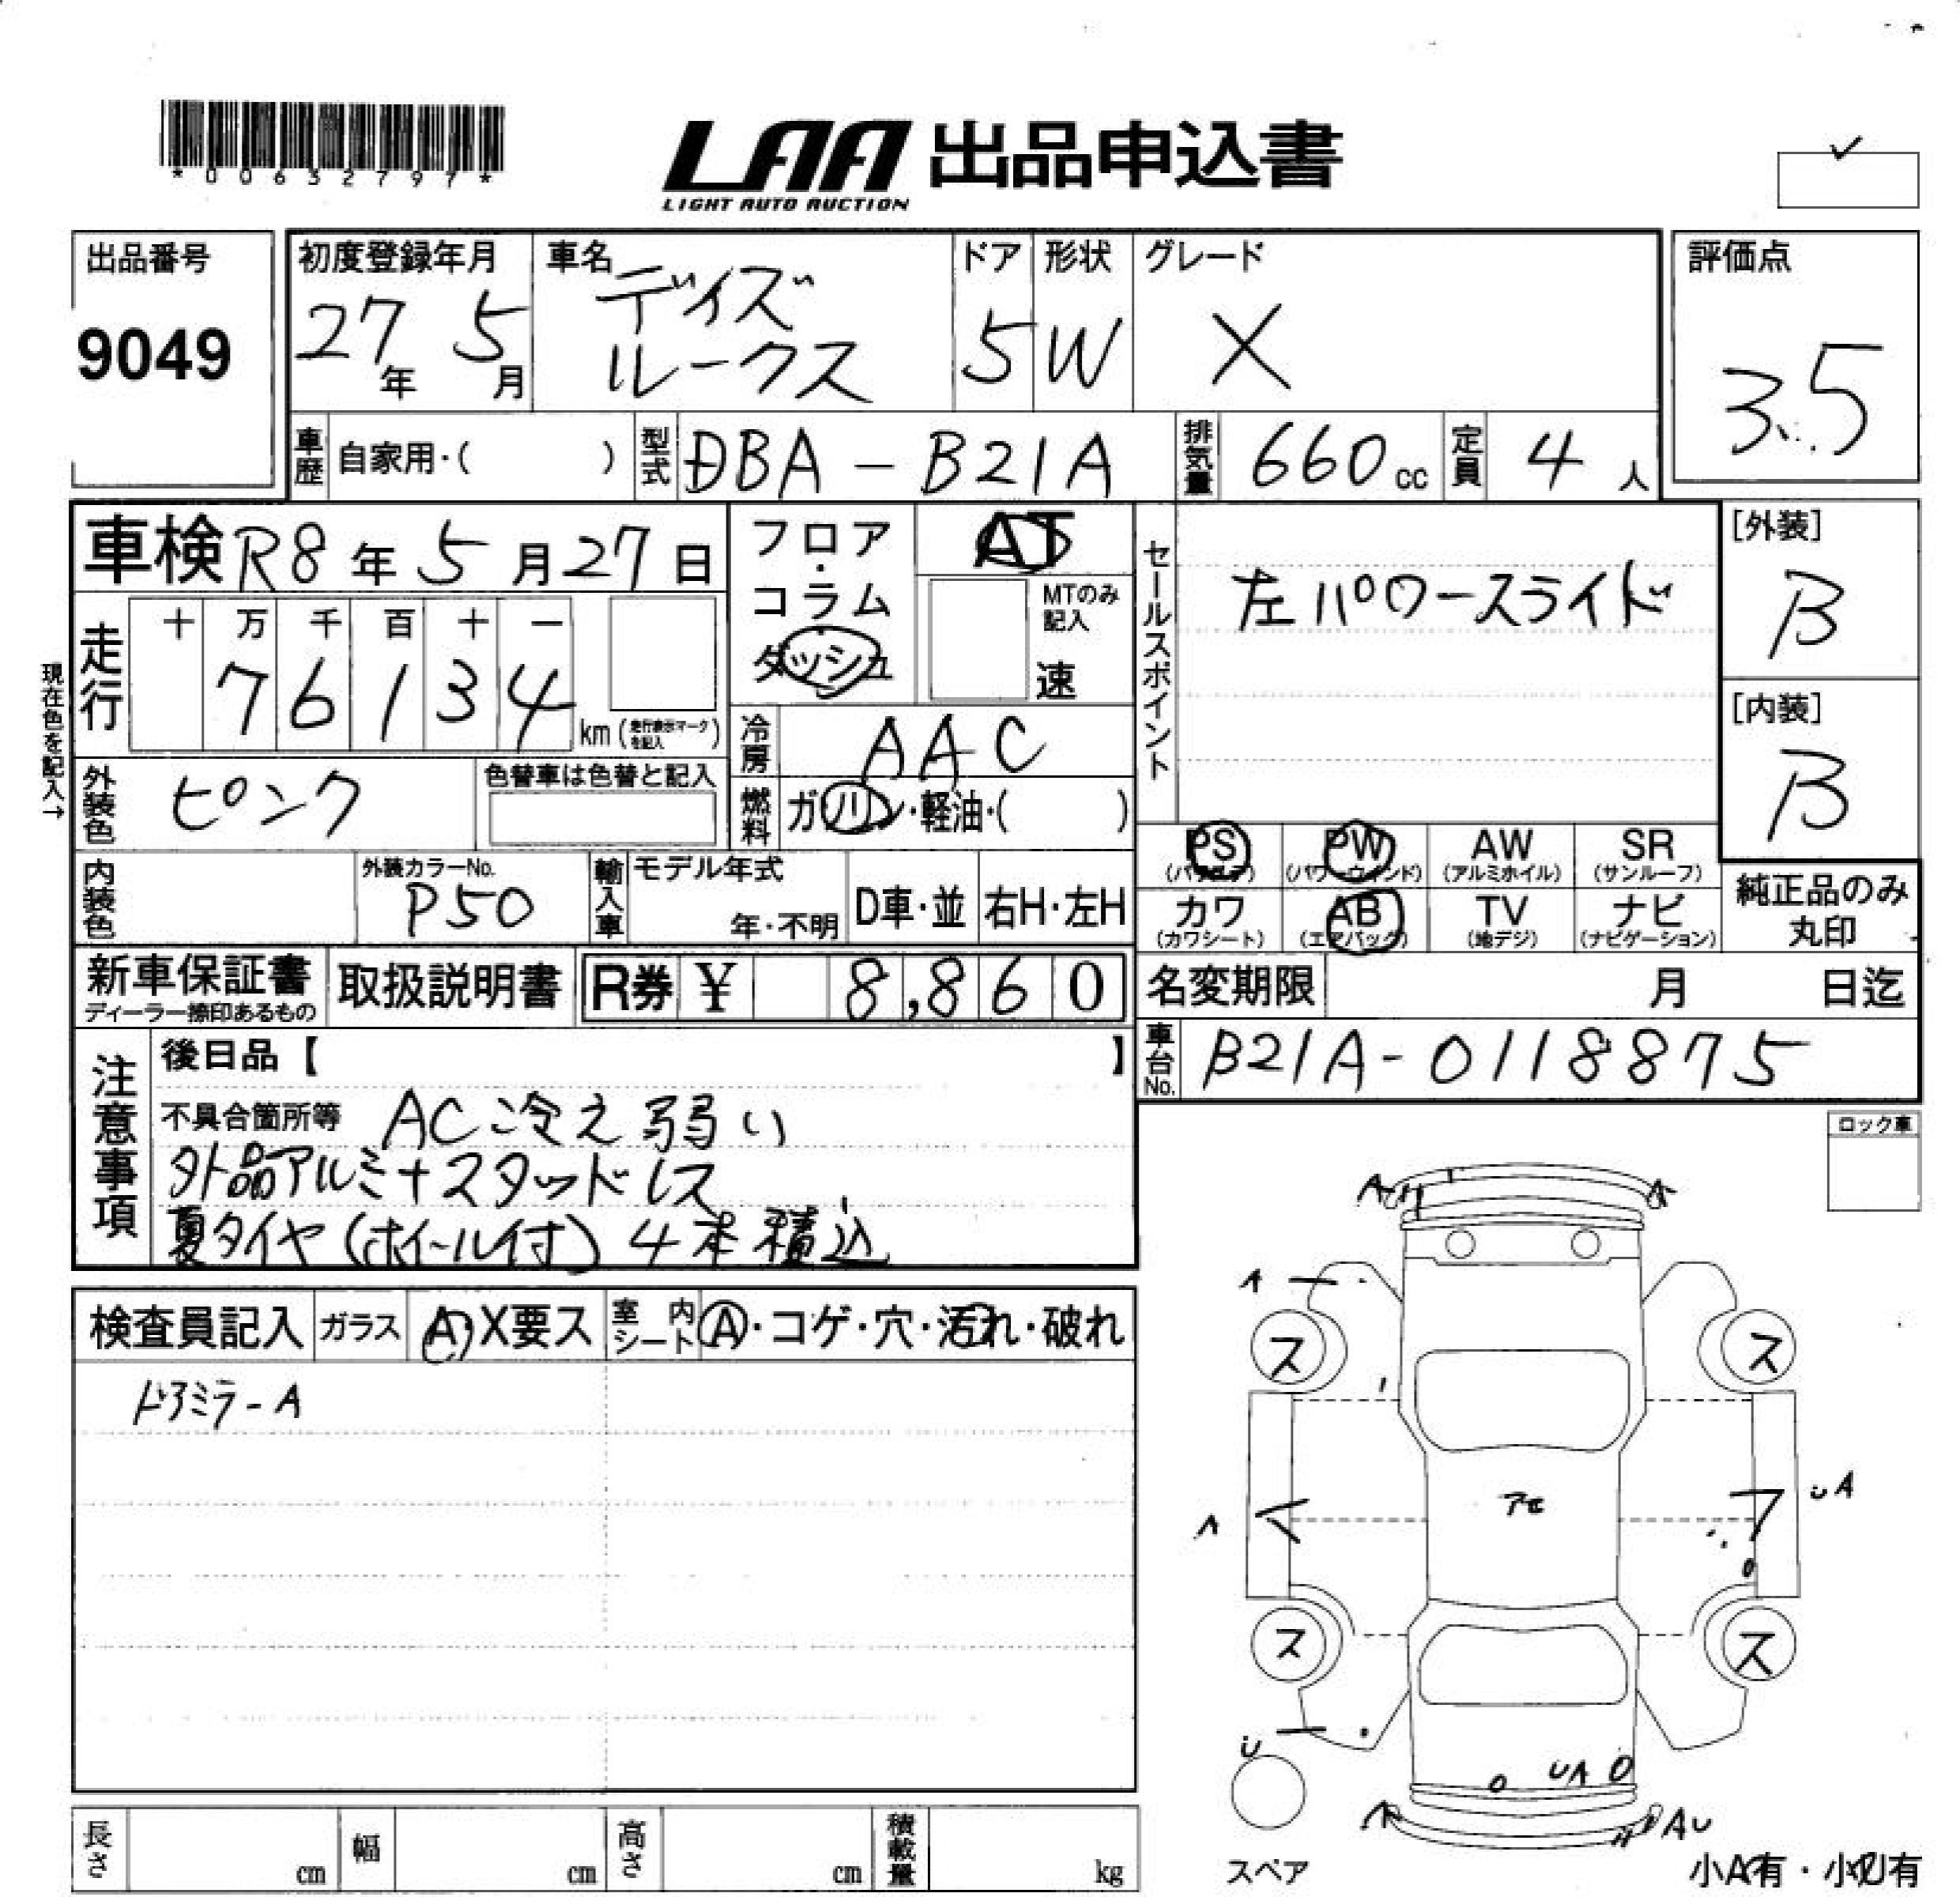 *00632797*
LAA 出品申込書
LIGHT AUTO AUCTION
✓
出品番号
9049
初度登録年月
27年 5月
車名
デイズ
ルークス
ドア
5
形状
W
グレード
X
評価点
3.5
車歴 自家用・( )
型式 DBA - B21A
排気量 660 cc
定員 4 人
車検 R8年 5月 27日
フロア・コラム
ダッシュ
AT
MTのみ記入
速
セールスポイント
左パワースライド
[外装]
B
[内装]
B
現在色を記入→
走行
十 万 千 百 十 一
7 6 1 3 4
km (走行表示マークを記入)
冷房 AAC
外装色 ピンク
色替車は色替と記入
燃料 ガソリン・軽油・( )
PS PW AW SR
(パワステ) (パワーウィンド) (アルミホイル) (サンルーフ)
カワ AB TV ナビ
(カワシート) (エアバック) (地デジ) (ナビゲーション)
純正品のみ
丸印
内装色
外装カラーNo.
P50
輸入車
モデル年式
年・不明
D車・並
右H・左H
新車保証書
ディーラー捺印あるもの
取扱説明書
R券 ¥ 8,860
名変期限 月 日迄
車台No. B21A-0118875
注意事項
後日品【 】
不具合箇所等 AC冷え弱い
外品アルミ+スタッドレス
夏タイヤ(ホイール付) 4本積込
ロック車
検査員記入
ガラス A・X要ス
室内シート A・コゲ・穴・汚れ・破れ
ドアミラーA
A A
A
ス ス
アモ
A UA
ス ス
U
UA
A AU
スペア
小A有・小U有
長さ cm
幅 cm
高さ cm
積載量 kg